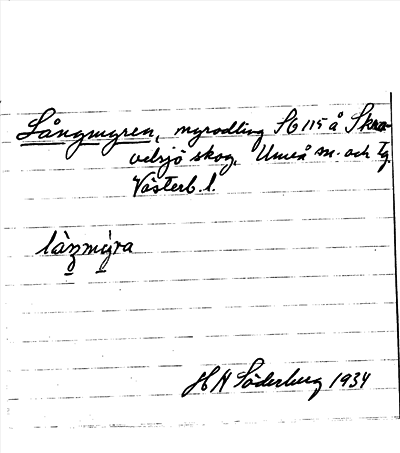 Långmyren, myrodling SG 115 å Skra-
velsjö skog, Umeå sn. och tg
Västerb. l.
làŋmýra
H N Söderberg 1934